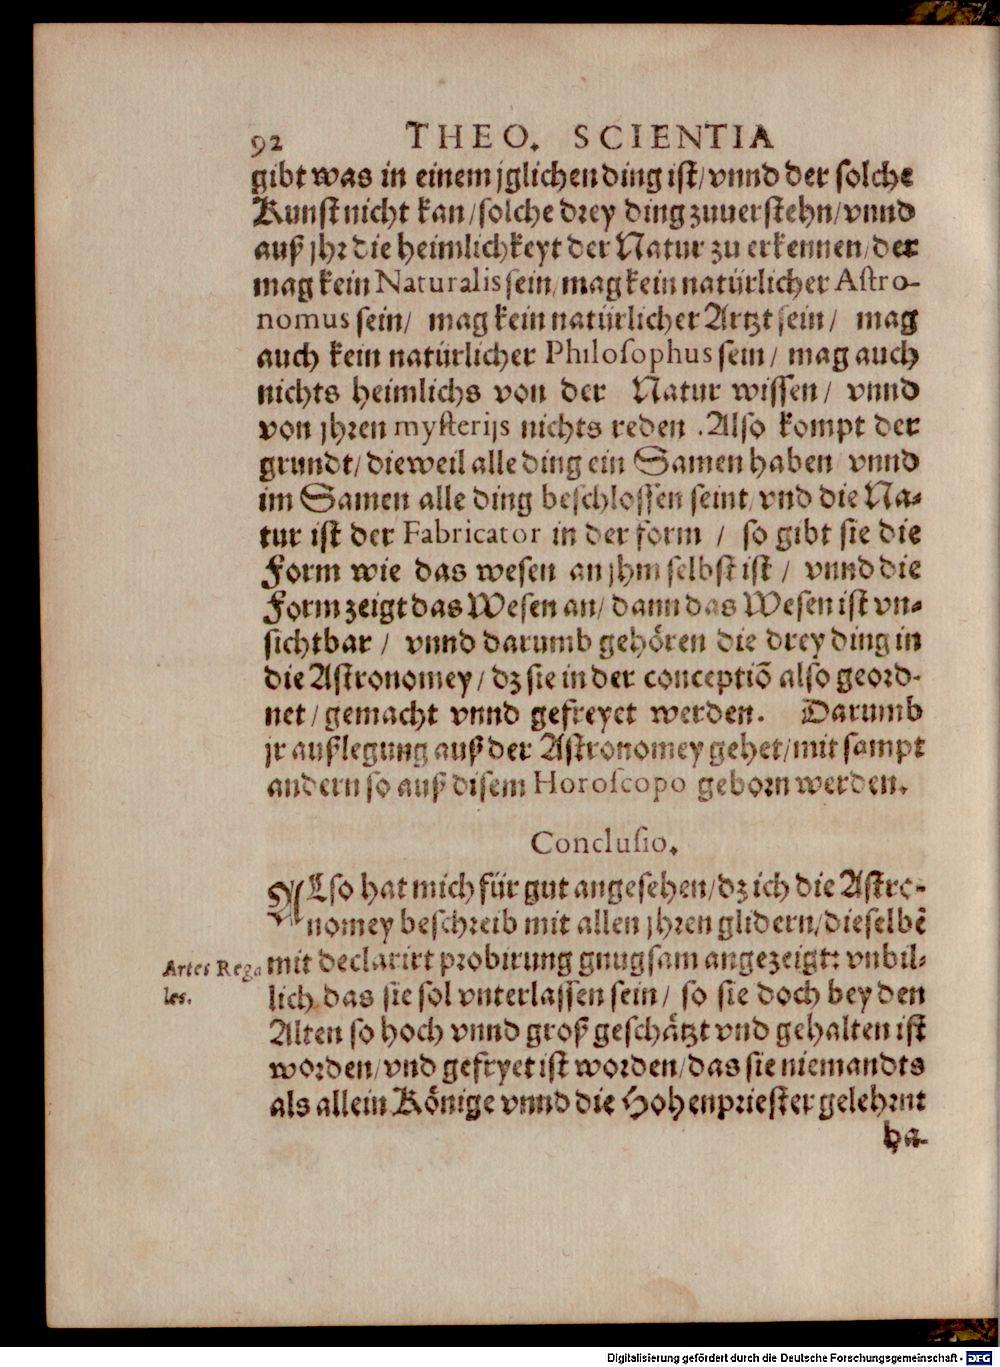 92 THEO. SCIENTIA
gibt was in einem jglichen ding ist/ vnnd der solche
Kunst nicht kan/ solche drey ding zuuerstehn/ vnnd
auß jhr die heimlichkeyt der Natur zu erkennen/ der
mag kein Naturalis sein/ mag kein natürlicher Astro-
nomus sein/ mag kein natürlicher Artzt sein/ mag
auch kein natürlicher Philosophus sein/ mag auch
nichts heimlichs von der Natur wissen/ vnnd
von jhren mysterijs nichts reden. Also kompt der
grundt/ dieweil alle ding ein Samen haben vnnd
im Samen alle ding beschlossen seint/ vnd die Na-
tur ist der Fabricator in der form / so gibt sie die
Form wie das wesen an jhm selbst ist / vnnd die
Form zeigt das Wesen an/ dann das Wesen ist vn-
sichtbar / vnnd darumb gehören die drey ding in
die Astronomey/ dz sie in der conceptiõ also geord-
net/ gemacht vnnd gefreyet werden. Darumb
jr außlegung auß der Astronomey gehet/ mit sampt
andern so auß disem Horoscopo geborn werden.
Conclusio.
ALso hat mich für gut angesehen/ dz ich die Astro-
nomey beschreib mit allen jhren glidern/ dieselbẽ
mit declarirt probirung gnugsam angezeigt: vnbil-
lich das sie sol vnterlassen sein/ so sie doch bey den
Alten so hoch vnnd groß geschätzt vnd gehalten ist
worden/ vnd gefryet ist worden/ das sie niemandts
als allein Könige vnnd die Hohenpriester gelehrnt
ha-
Artes Rega
les.
Digitalisierung gefördert durch die Deutsche Forschungsgemeinschaft - DFG